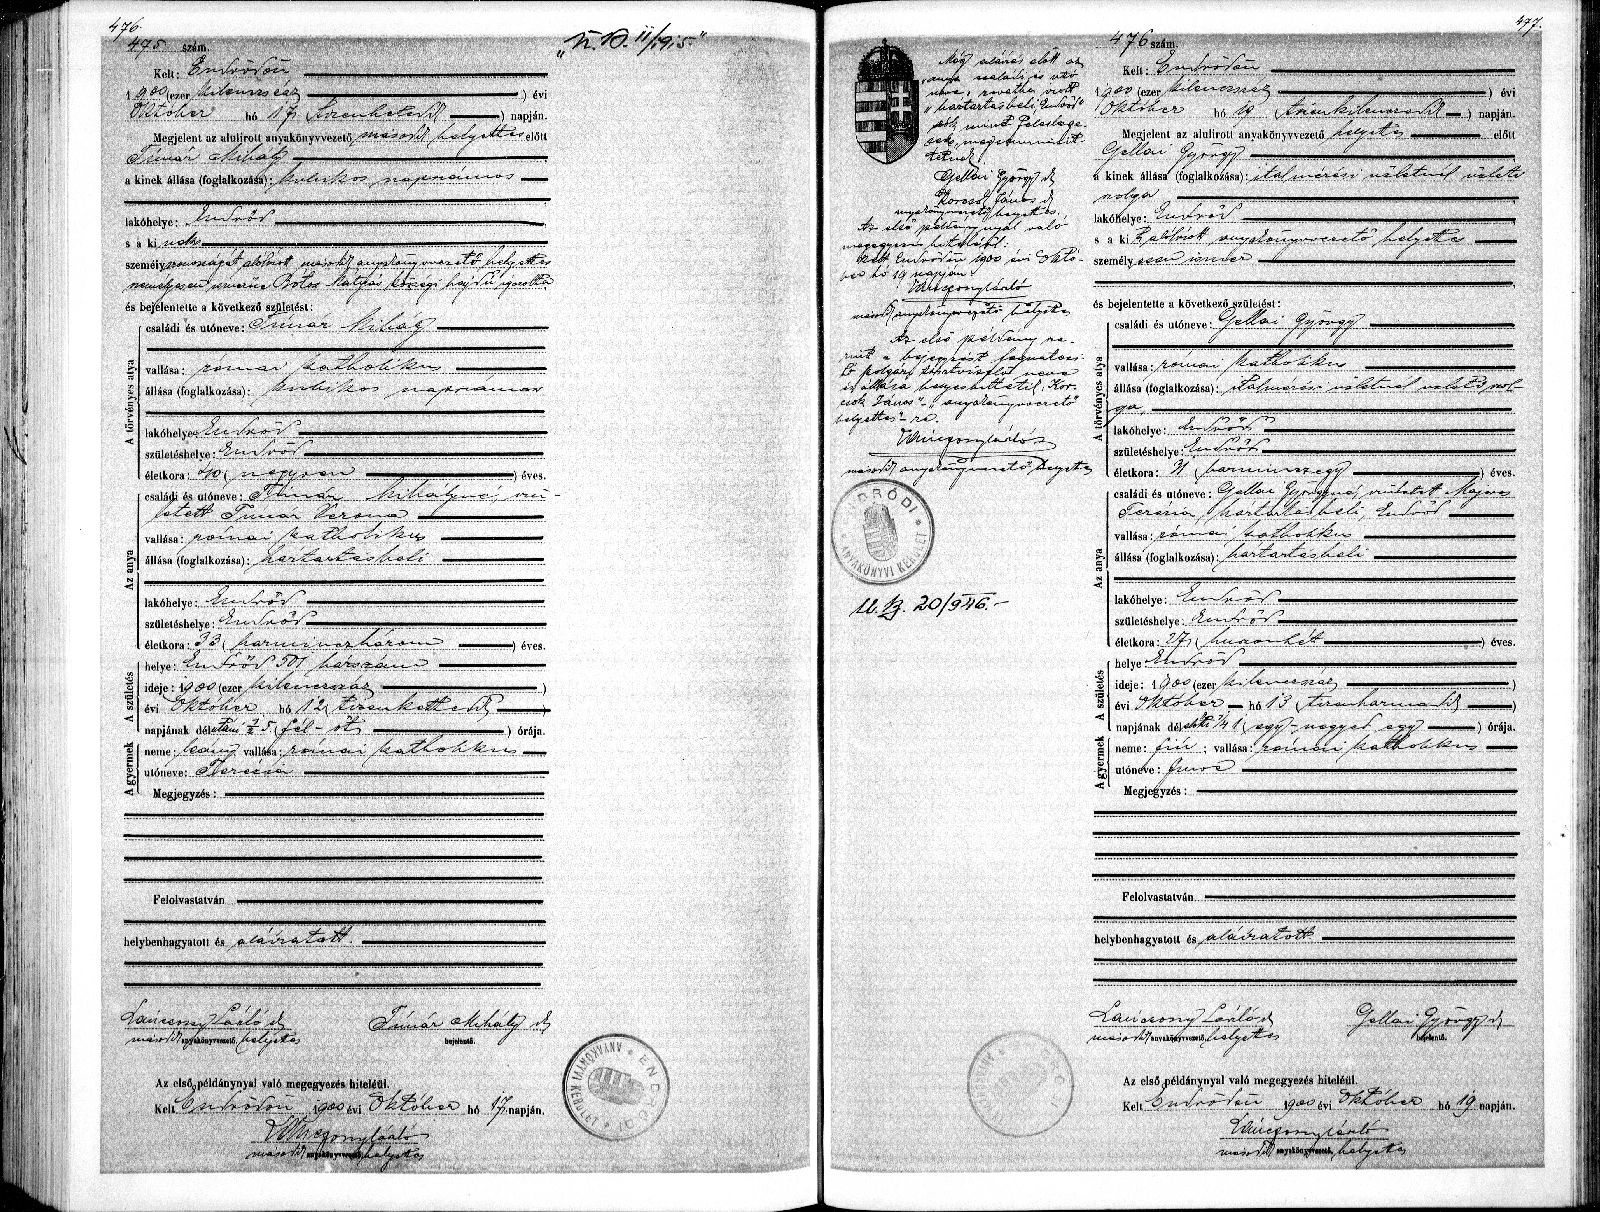 476.
475 szám.
„U. B. 11/1915."
Kelt: Endrődön
1900 (ezer kilenczszáz) évi
Október hó 17 (tizenhetedik) napján.
Megjelent az alulirott anyakönyvvezető, másod helyettes előtt
Timár Mihály
a kinek állása (foglalkozása): kubikos napszámos
lakóhelye: Endrőd
s a ki nek
személyazonosságát alólírott másod anyakönyvvezető helyettes
személyesen ismerve Bótos Mátyás községi hajdú igazolta
és bejelentette a következő születést:
A törvényes atya
családi és utóneve: Timár Mihály
vallása: római katholikus
állása (foglalkozása): kubikos napszámos
lakóhelye: Endrőd
születéshelye: Endrőd
életkora: 40 (negyven) éves.
Az anya
családi és utóneve: Timár Mihályné, szü-
letett Timár Verona
vallása: római katholikus
állása (foglalkozása): háztartásbeli
lakóhelye: Endrőd
születéshelye: Endrőd
életkora: 33 (harminczhárom) éves.
A születés
helye: Endrőd 501 házszám
ideje: 1900 (ezer kilenczszáz)
évi Október hó 12 (tizenkettedik)
napjának délutáni ½ 5 (fél-öt) órája.
A gyermek
neme: leány vallása: római katholikus
utóneve: Terézia
Megjegyzés:
Felolvastatván
helybenhagyatott és aláíratott.
Lánczony László
másod anyakönyvvezető, helyettes
Timár Mihály
bejelentő.
Az első példánynyal való megegyezés hiteléül.
Kelt Endrődön 1900 évi Október hó 17 napján.
Lánczony László
másod anyakönyvvezető, helyettes
ENDRŐDI * ANYAKÖNYVI KERÜLET *
477.
Még aláírás előtt az
anya családi és utó
neve, rovatba írott
„háztartásbeli Endrőd"
szók mint feleslege-
sek, megsemmisít-
tetnek.
Gellai György
Korcsok János
anyakönyvvezető helyettes.
Az első példánynyal való
megegyezés hiteléül.
Kelt Endrődön 1900 évi Októ-
ber hó 19 napján
Lánczony László
másod anyakönyvvezető helyettes
Az első példány
a bejegyzést
polgári tisztviselő neve
és állása helyesbittetik „Kor-
csok János" „anyakönyvvezető
helyettes"-re.
Lánczony László
másod anyakönyvvezető helyettes
ENDRŐDI * ANYAKÖNYVI KERÜLET *
U. B. 20/946.-
476 szám.
Kelt: Endrődön
1900 (ezer kilenczszáz) évi
Október hó 19 (tizenkilenczedik) napján.
Megjelent az alulirott anyakönyvvezető helyettes előtt
Gellai György
a kinek állása (foglalkozása): italmérési üzletnél üzleti
szolga
lakóhelye: Endrőd
s a ki t alólírott anyakönyvvezető helyettes
személyesen ismer
és bejelentette a következő születést:
A törvényes atya
családi és utóneve: Gellai György
vallása: római katholikus
állása (foglalkozása): italmérési üzletnél üzleti szol-
ga
lakóhelye: Endrőd
születéshelye: Endrőd
életkora: 31 (harminczegy) éves.
Az anya
családi és utóneve: Gellai Györgyné, született Majoros
Terézia, háztartásbeli, Endrőd
vallása: római katholikus
állása (foglalkozása): háztartásbeli
lakóhelye: Endrőd
születéshelye: Endrőd
életkora: 27 (huszonhét) éves.
A születés
helye Endrőd
ideje: 1900 (ezer kilenczszáz)
évi Október hó 13 (tizenharmadik)
napjának délelőtti ¼ 1 (egy-negyed egy) órája.
A gyermek
neme: fiú ; vallása: római katholikus
utóneve: Imre
Megjegyzés:
Felolvastatván
helybenhagyatott és aláíratott
Lánczony László
másod anyakönyvvezető, helyettes
Gellai György
bejelentő.
Az első példánynyal való megegyezés hiteléül.
Kelt Endrődön 1900 évi Október hó 19 napján.
Lánczony László
másod anyakönyvvezető, helyettes